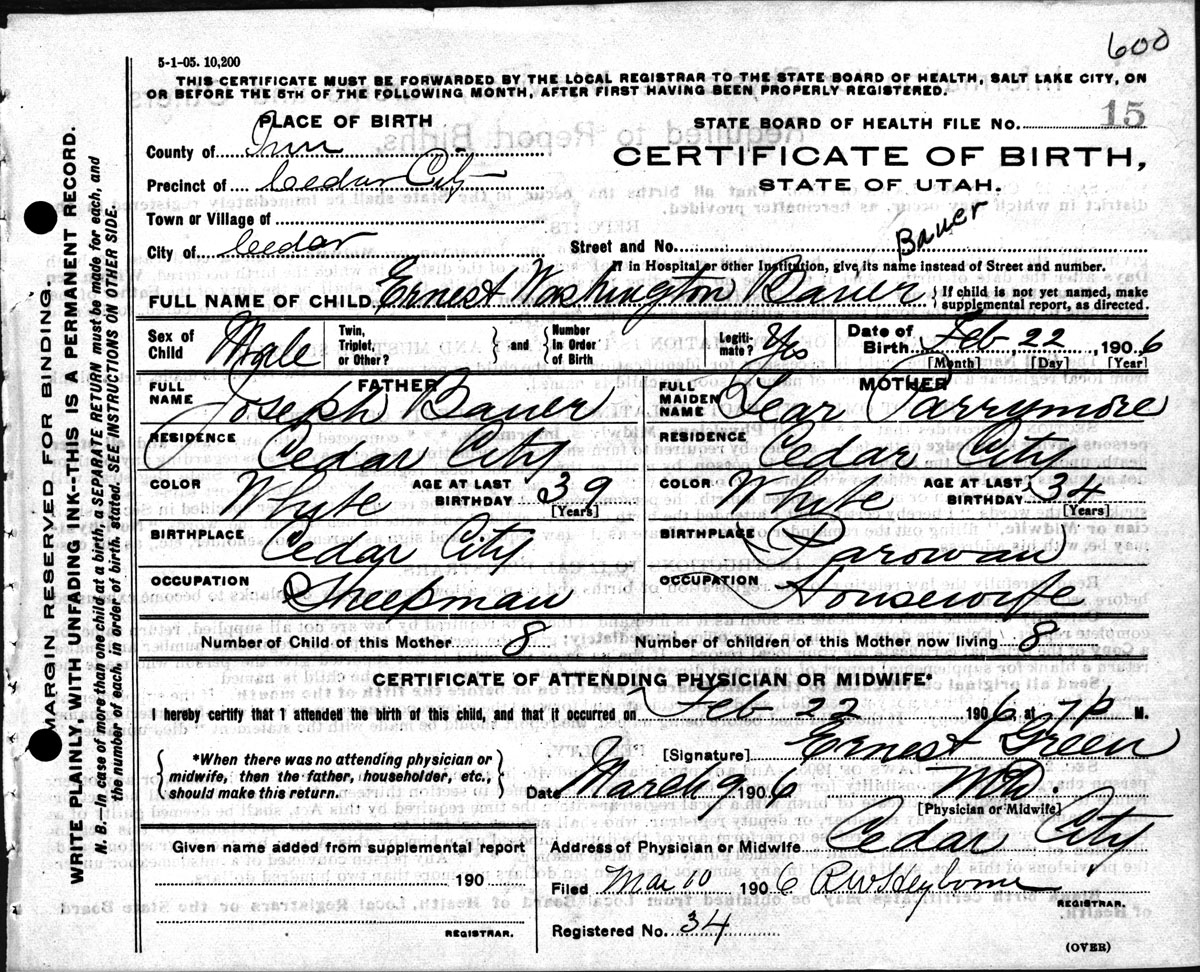 600
5-1-05. 10,200
THIS CERTIFICATE MUST BE FORWARDED BY THE LOCAL REGISTRAR TO THE STATE BOARD OF HEALTH, SALT LAKE CITY, ON
OR BEFORE THE 5TH OF THE FOLLOWING MONTH, AFTER FIRST HAVING BEEN PROPERLY REGISTERED.
PLACE OF BIRTH
STATE BOARD OF HEALTH FILE No. 15
County of
CERTIFICATE OF BIRTH,
Precinct of Cedar City
STATE OF UTAH.
Town or Village of
City of Cedar
Street and No.
Bauer
If in Hospital or other Institution, give its name instead of Street and number.
FULL NAME OF CHILD Ernest Washington Bauer { If child is not yet named, make
supplemental report, as directed.
Sex of Child Male Twin, Triplet, or Other? } and { Number in Order of Birth Legiti-mate? Yes Date of Birth Feb 22, 1906
[Month] [Day] [Year]
FATHER MOTHER
FULL NAME Joseph Bauer FULL MAIDEN NAME Parrymore
RESIDENCE Cedar City RESIDENCE Cedar City
COLOR Whyte AGE AT LAST BIRTHDAY 39 [Years] COLOR Whyte AGE AT LAST BIRTHDAY 34 [Years]
BIRTHPLACE Cedar City BIRTHPLACE Parowan
OCCUPATION Sheepman OCCUPATION Housewife
Number of Child of this Mother 8 Number of children of this Mother now living 8
CERTIFICATE OF ATTENDING PHYSICIAN OR MIDWIFE*
I hereby certify that I attended the birth of this child, and that it occurred on Feb 22 1906, at 7 P M.
{ *When there was no attending physician or
midwife, then the father, householder, etc.,
should make this return. }
[Signature] Ernest Green
Date March 9 1906 MD.
[Physician or Midwife]
Given name added from supplemental report
190
REGISTRAR.
Address of Physician or Midwife Cedar City
Filed Mar 10 1906
REGISTRAR.
Registered No. 34
(OVER)
MARGIN RESERVED FOR BINDING.
WRITE PLAINLY, WITH UNFADING INK--THIS IS A PERMANENT RECORD.
N. B.--In case of more than one child at a birth, a SEPARATE RETURN must be made for each, and
the number of each, in order of birth, stated. SEE INSTRUCTIONS ON OTHER SIDE.